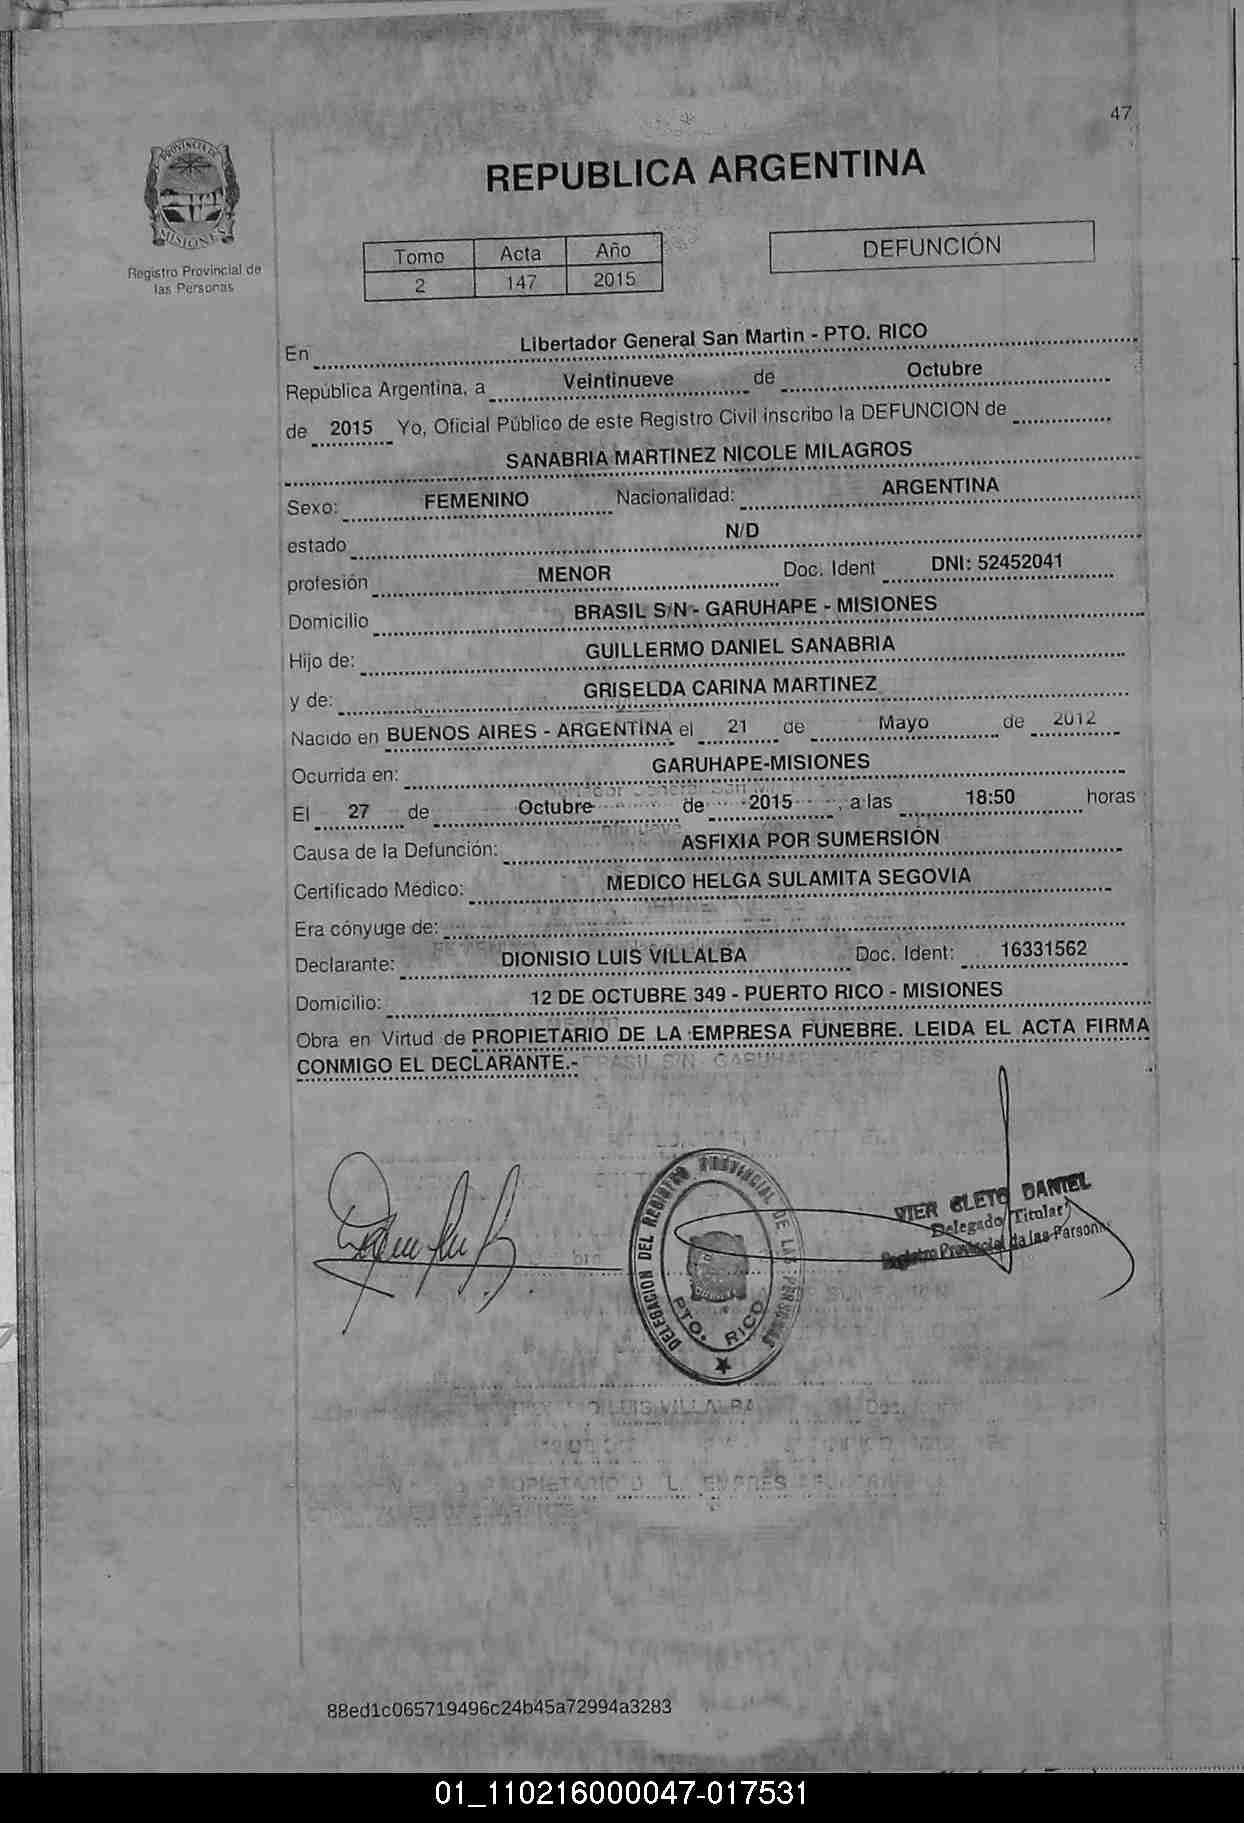 47
PROVINCIA DE
MISIONES
Registro Provincial de
las Personas
REPUBLICA ARGENTINA
Tomo Acta Año
2 147 2015
DEFUNCIÓN
En Libertador General San Martin - PTO. RICO
República Argentina, a Veintinueve de Octubre
de 2015 Yo, Oficial Público de este Registro Civil inscribo la DEFUNCION de
SANABRIA MARTINEZ NICOLE MILAGROS
Sexo: FEMENINO Nacionalidad: ARGENTINA
estado N/D
profesión MENOR Doc. Ident DNI: 52452041
Domicilio BRASIL S/N - GARUHAPE - MISIONES
Hijo de: GUILLERMO DANIEL SANABRIA
y de: GRISELDA CARINA MARTINEZ
Nacido en BUENOS AIRES - ARGENTINA el 21 de Mayo de 2012
Ocurrida en: GARUHAPE-MISIONES
El 27 de Octubre de 2015, a las 18:50 horas
Causa de la Defunción: ASFIXIA POR SUMERSIÓN
Certificado Médico: MEDICO HELGA SULAMITA SEGOVIA
Era cónyuge de:
Declarante: DIONISIO LUIS VILLALBA Doc. Ident: 16331562
Domicilio: 12 DE OCTUBRE 349 - PUERTO RICO - MISIONES
Obra en Virtud de PROPIETARIO DE LA EMPRESA FUNEBRE. LEIDA EL ACTA FIRMA
CONMIGO EL DECLARANTE.-
DELEGACION DEL REGISTRO PROVINCIAL DE LAS PERSONAS
PTO. RICO
CLETO DANIEL
Delegado Titular
Registro Provincial de las Personas
88ed1c065719496c24b45a72994a3283
01_110216000047-017531